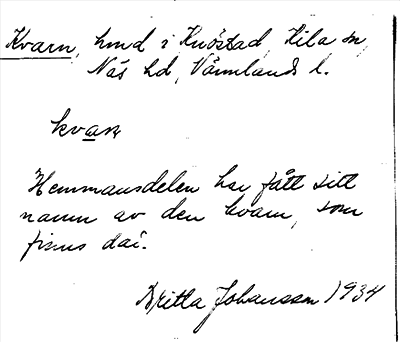 Kvarn, hmd i Knöstad, Kila sn,
Näs hd, Värmlands l.
kvarn
Hemmansdelen har fått sitt
namn av den kvarn, som
finns där.
Britta Johansson 1934